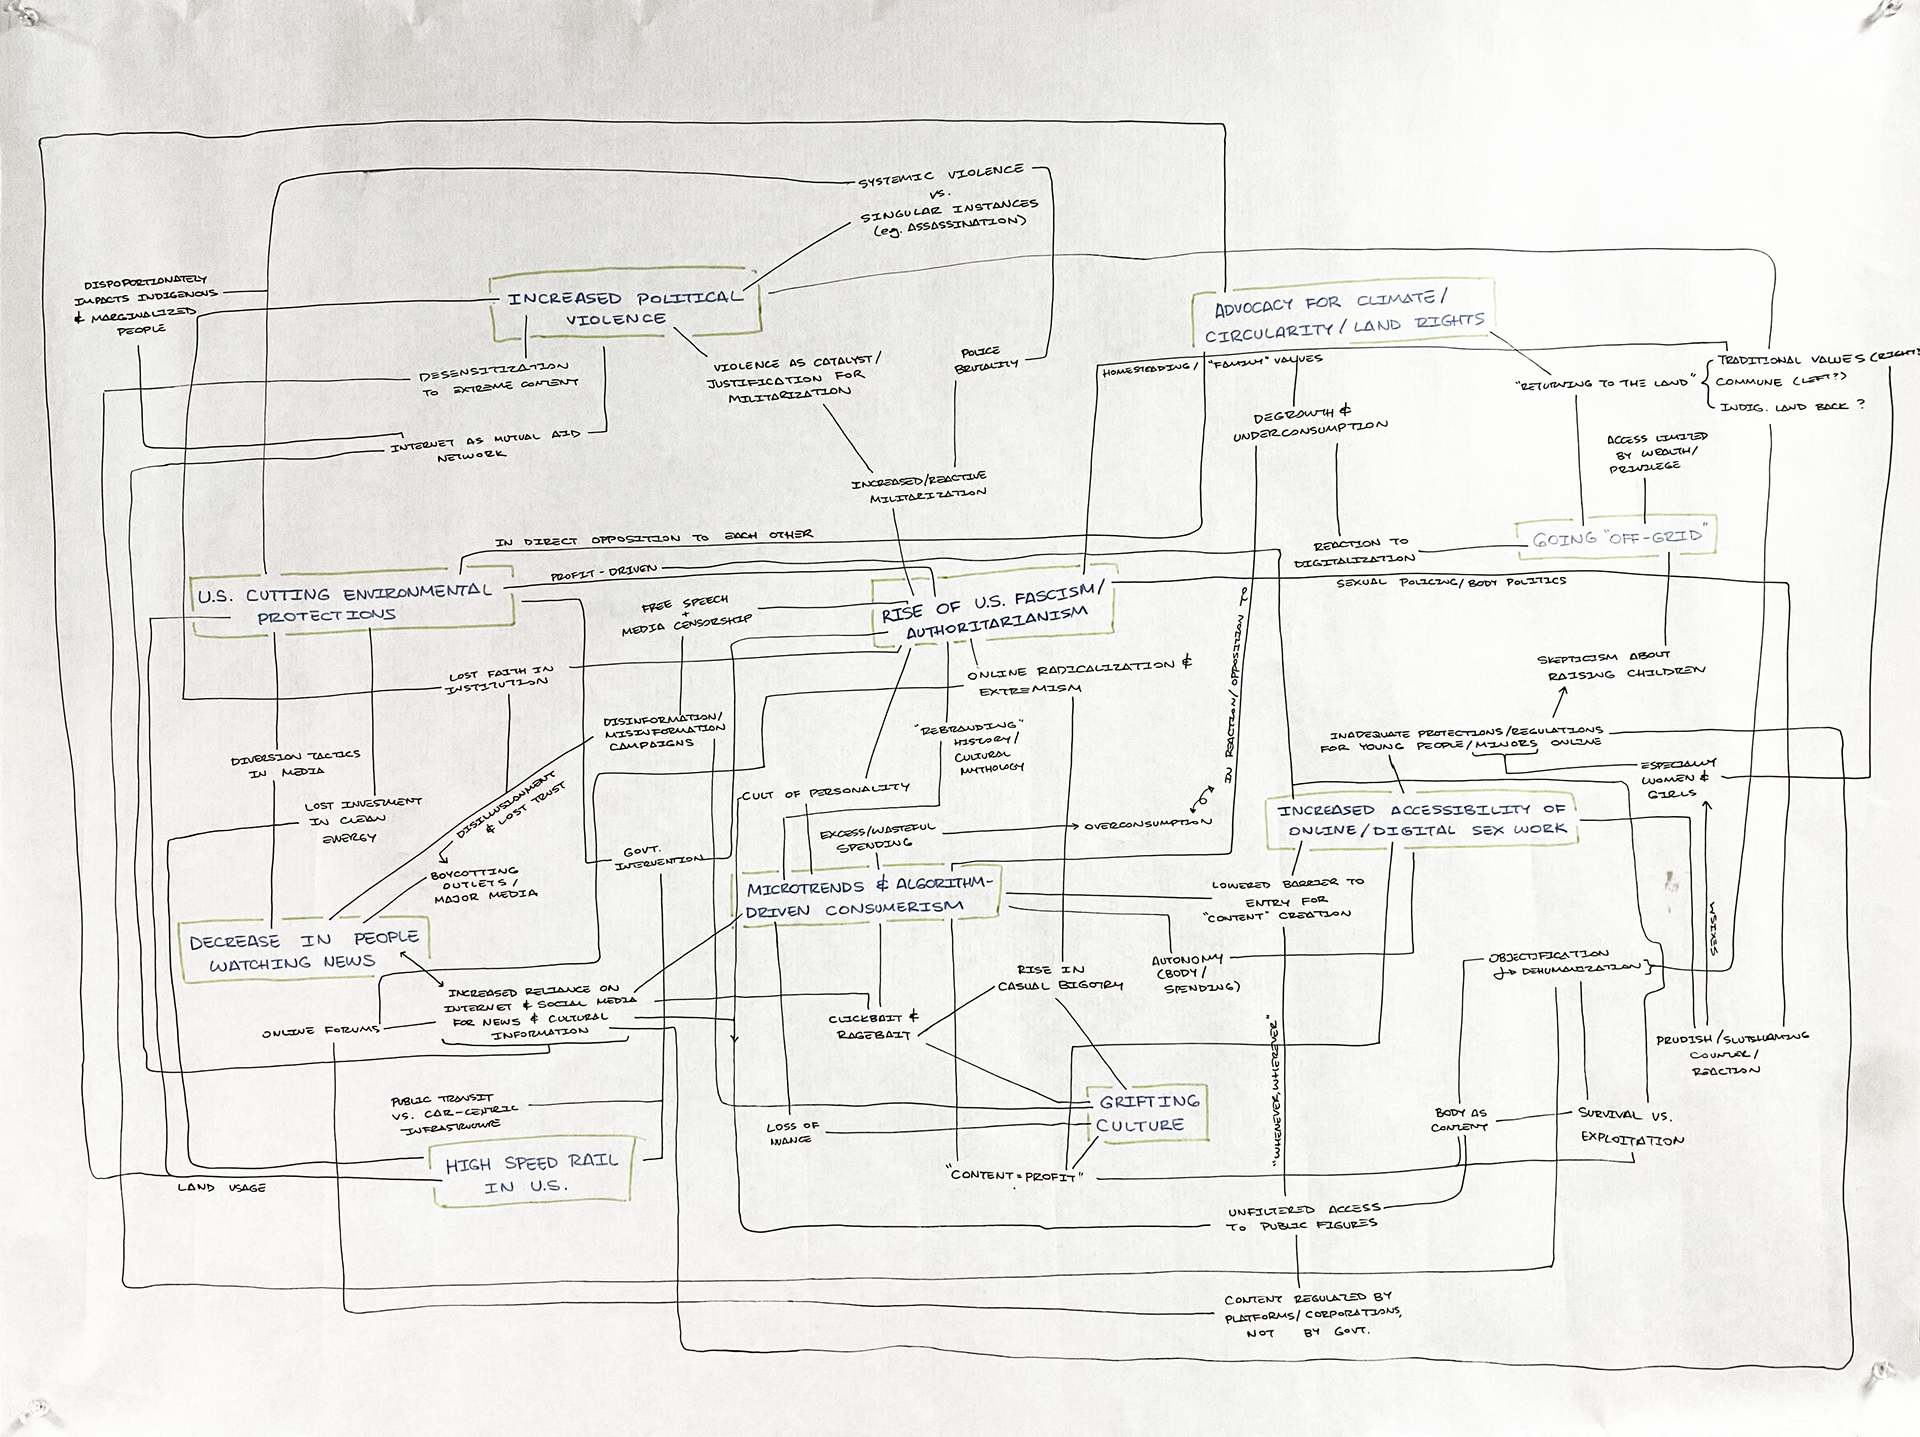 SYSTEMIC VIOLENCE
VS.
SINGULAR INSTANCES
(eg. ASSASSINATION)
DISPOPORTIONATELY
IMPACTS INDIGENOUS
& MARGINALIZED
PEOPLE
INCREASED POLITICAL
VIOLENCE
ADVOCACY FOR CLIMATE/
CIRCULARITY/LAND RIGHTS
DESENSITIZATION
TO EXTREME CONTENT
VIOLENCE AS CATALYST/
JUSTIFICATION FOR
MILITARIZATION
POLICE
BRUTALITY
HOMESTEADING/ "FAMILY" VALUES
"RETURNING TO THE LAND"
TRADITIONAL VALUES (RIGHT?
COMMUNE (LEFT?)
INDIG. LAND BACK ?
DEGROWTH &
UNDERCONSUMPTION
INTERNET AS MUTUAL AID
NETWORK
ACCESS LIMITED
BY WEALTH/
PRIVILEGE
INCREASED/REACTIVE
MILITARIZATION
IN DIRECT OPPOSITION TO EACH OTHER
REACTION TO
DIGITALIZATION
GOING "OFF-GRID"
PROFIT-DRIVEN
SEXUAL POLICING/BODY POLITICS
U.S. CUTTING ENVIRONMENTAL
PROTECTIONS
FREE SPEECH
+
MEDIA CENSORSHIP
RISE OF U.S. FASCISM/
AUTHORITARIANISM
IN REACTION/OPPOSITION TO
LOST FAITH IN
INSTITUTION
ONLINE RADICALIZATION &
EXTREMISM
SKEPTICISM ABOUT
RAISING CHILDREN
DISINFORMATION/
MISINFORMATION
CAMPAIGNS
"REBRANDING"
HISTORY/
CULTURAL
MYTHOLOGY
INADEQUATE PROTECTIONS/REGULATIONS
FOR YOUNG PEOPLE/MINORS ONLINE
DIVERSION TACTICS
IN MEDIA
ESPECIALLY
WOMEN &
GIRLS
LOST INVESTMENT
IN CLEAN
ENERGY
DISILLUSIONMENT
& LOST TRUST
CULT OF PERSONALITY
EXCESS/WASTEFUL
SPENDING
OVERCONSUMPTION
INCREASED ACCESSIBILITY OF
ONLINE/DIGITAL SEX WORK
GOVT.
INTERVENTION
BOYCOTTING
OUTLETS/
MAJOR MEDIA
MICROTRENDS & ALGORITHM-
DRIVEN CONSUMERISM
LOWERED BARRIER TO
ENTRY FOR
"CONTENT" CREATION
DECREASE IN PEOPLE
WATCHING NEWS
SEXISM
AUTONOMY
(BODY/
SPENDING)
OBJECTIFICATION
DEHUMANIZATION
RISE IN
CASUAL BIGOTRY
INCREASED RELIANCE ON
INTERNET & SOCIAL MEDIA
FOR NEWS & CULTURAL
INFORMATION
ONLINE FORUMS
CLICKBAIT &
RAGEBAIT
PRUDISH/SLUTSHAMING
COUNTER/
REACTION
"WHENEVER, WHEREVER"
PUBLIC TRANSIT
VS. CAR-CENTRIC
INFRASTRUCTURE
GRIFTING
CULTURE
LOSS OF
NUANCE
BODY AS
CONTENT
SURVIVAL VS.
EXPLOITATION
HIGH SPEED RAIL
IN U.S.
"CONTENT=PROFIT"
LAND USAGE
UNFILTERED ACCESS
TO PUBLIC FIGURES
CONTENT REGULATED BY
PLATFORMS/CORPORATIONS,
NOT BY GOVT.